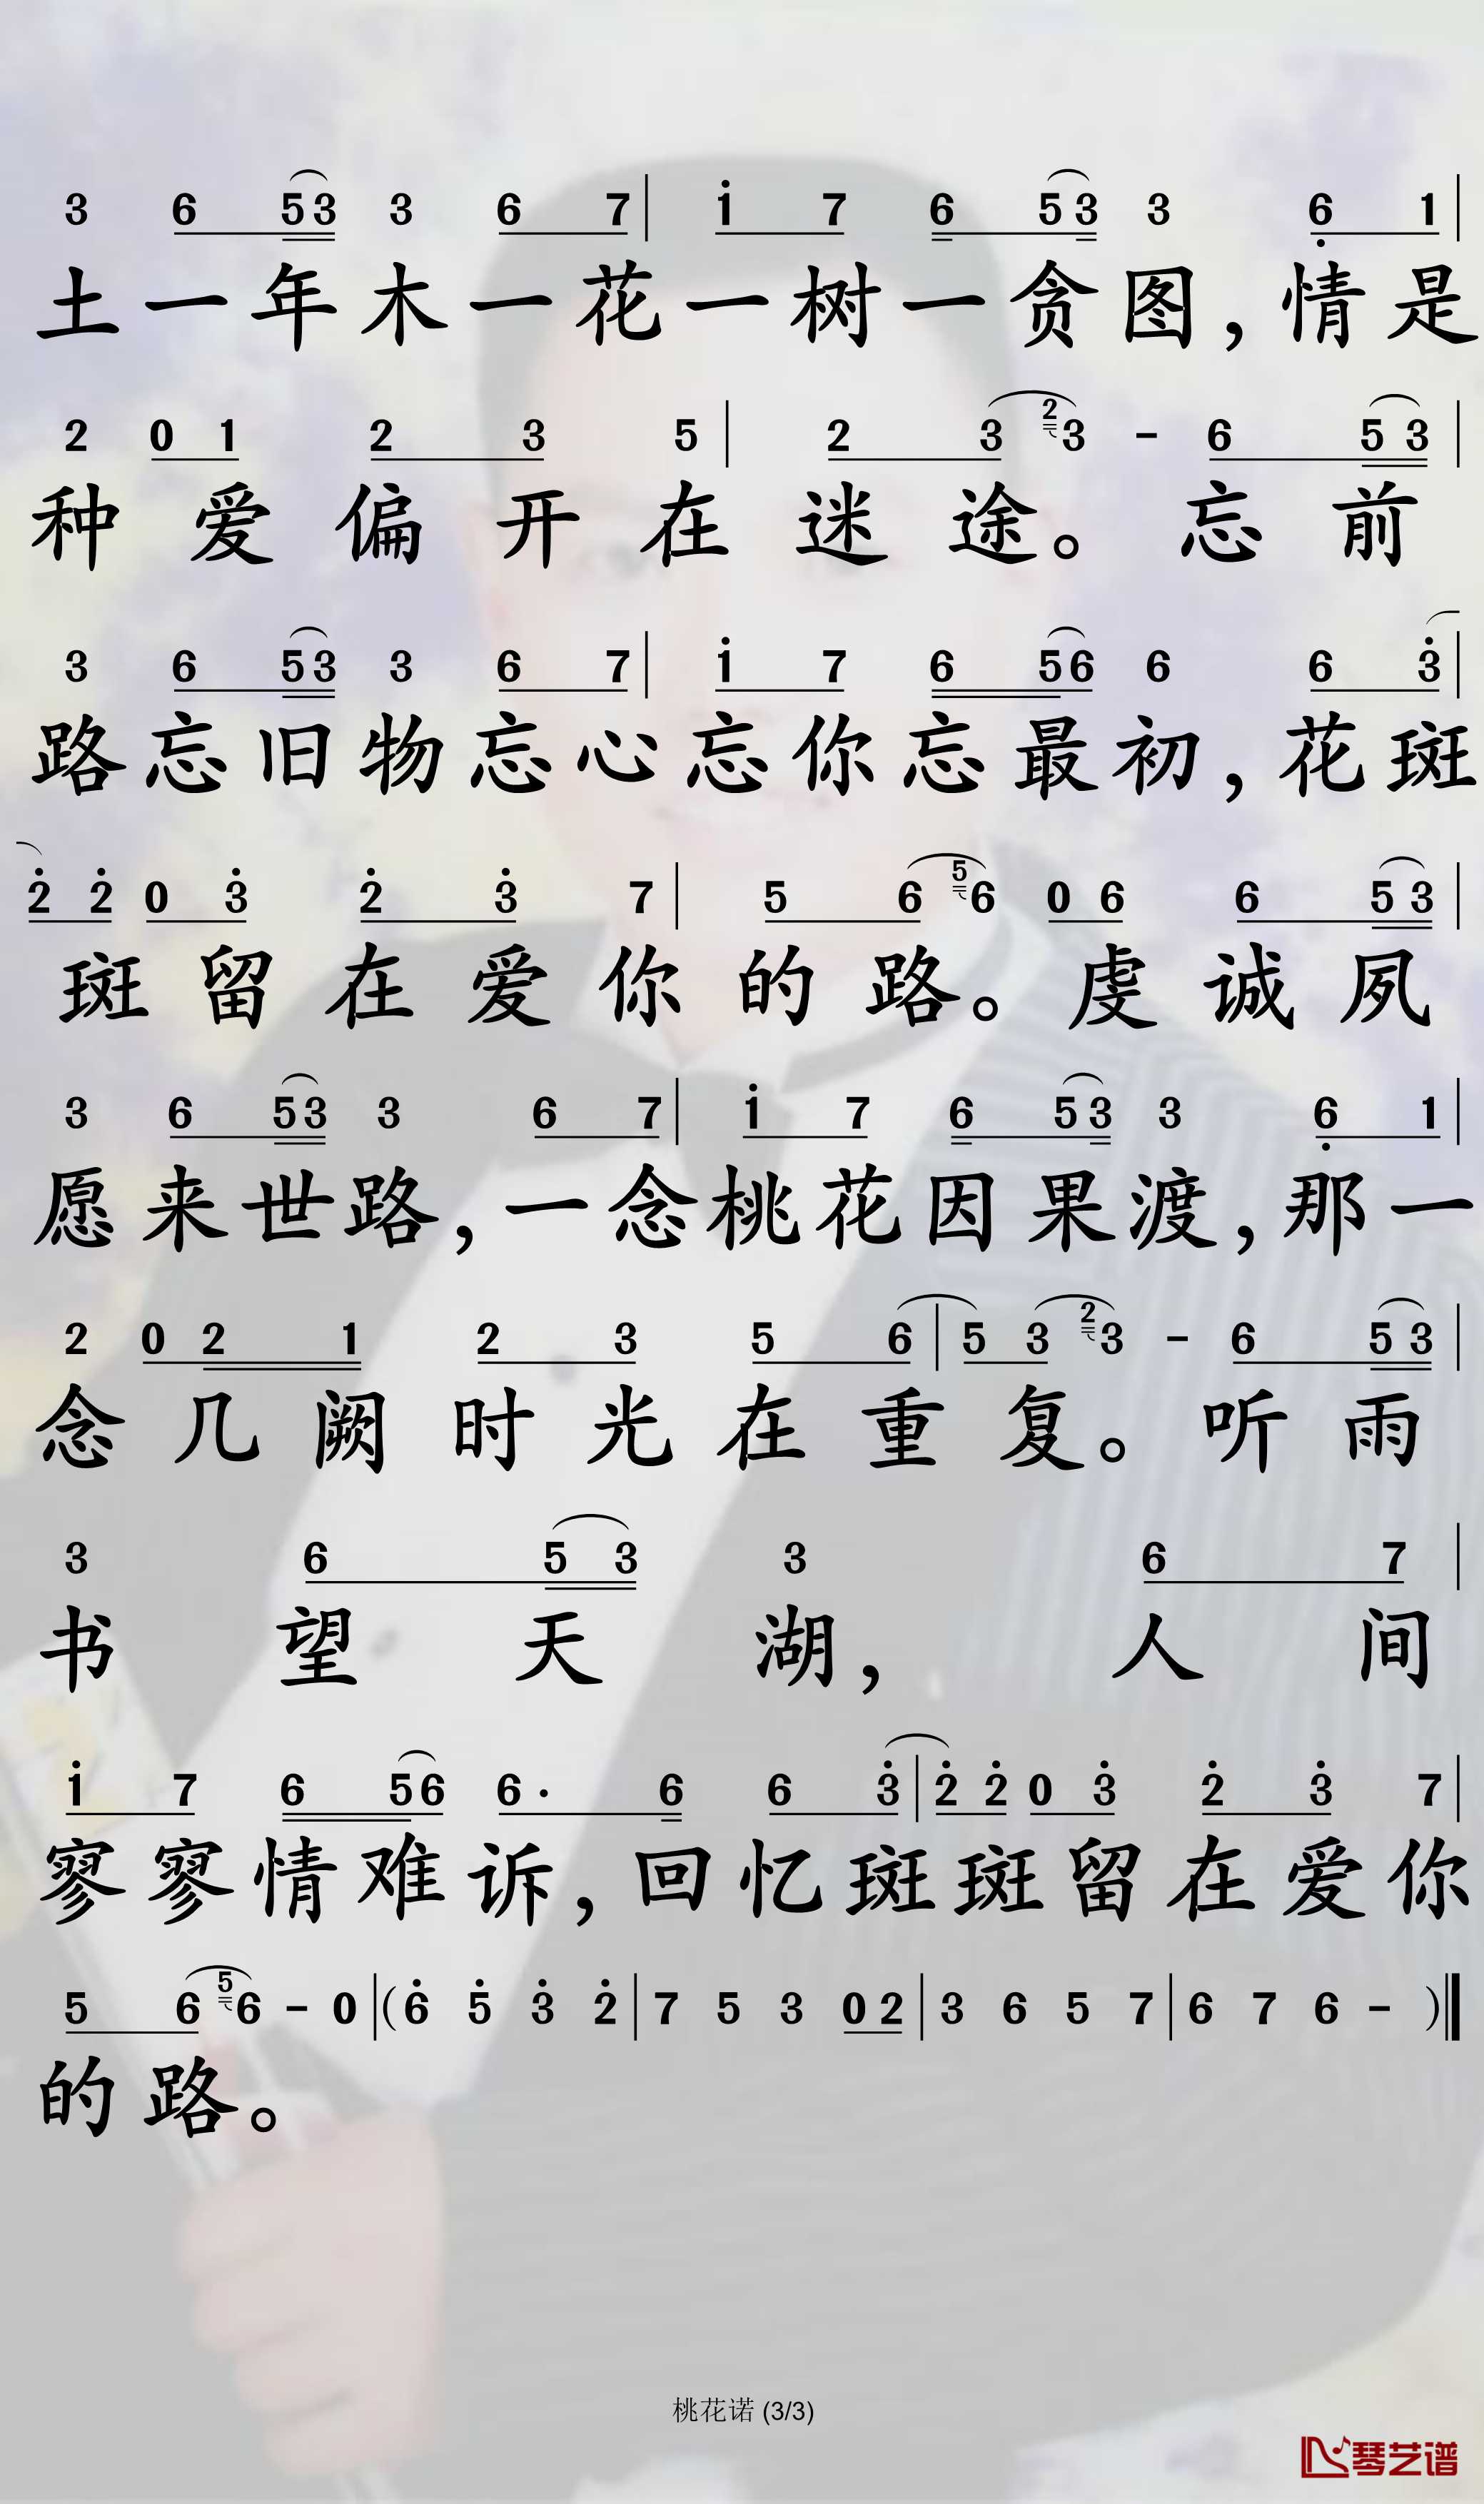 3 6 5 3 3 6 7 | 1 7 6 5 3 3 6 1 |
土一年木一花一树一贪图,情是
2 0 1 2 3 5 | 2 3 2 3 - 6 5 3 |
种爱偏开在迷途。忘前
3 6 5 3 3 6 7 | 1 7 6 5 6 6 6 3 |
路忘旧物忘心忘你忘最初,花斑
2 2 0 3 2 3 7 | 5 6 5 6 0 6 6 5 3 |
斑留在爱你的路。虔诚夙
3 6 5 3 3 6 7 | 1 7 6 5 3 3 6 1 |
愿来世路,一念桃花因果渡,那一
2 0 2 1 2 3 5 6 | 5 3 2 3 - 6 5 3 |
念几阙时光在重复。听雨
3 6 5 3 3 6 7 |
书望天湖,人间
1 7 6 5 6 6 · 6 6 3 | 2 2 0 3 2 3 7 |
寥寥情难诉,回忆斑斑留在爱你
5 6 5 6 - 0 | ( 6 5 3 2 | 7 5 3 0 2 | 3 6 5 7 | 6 7 6 - ) ‖
的路。
桃花诺 (3/3)
琴艺谱